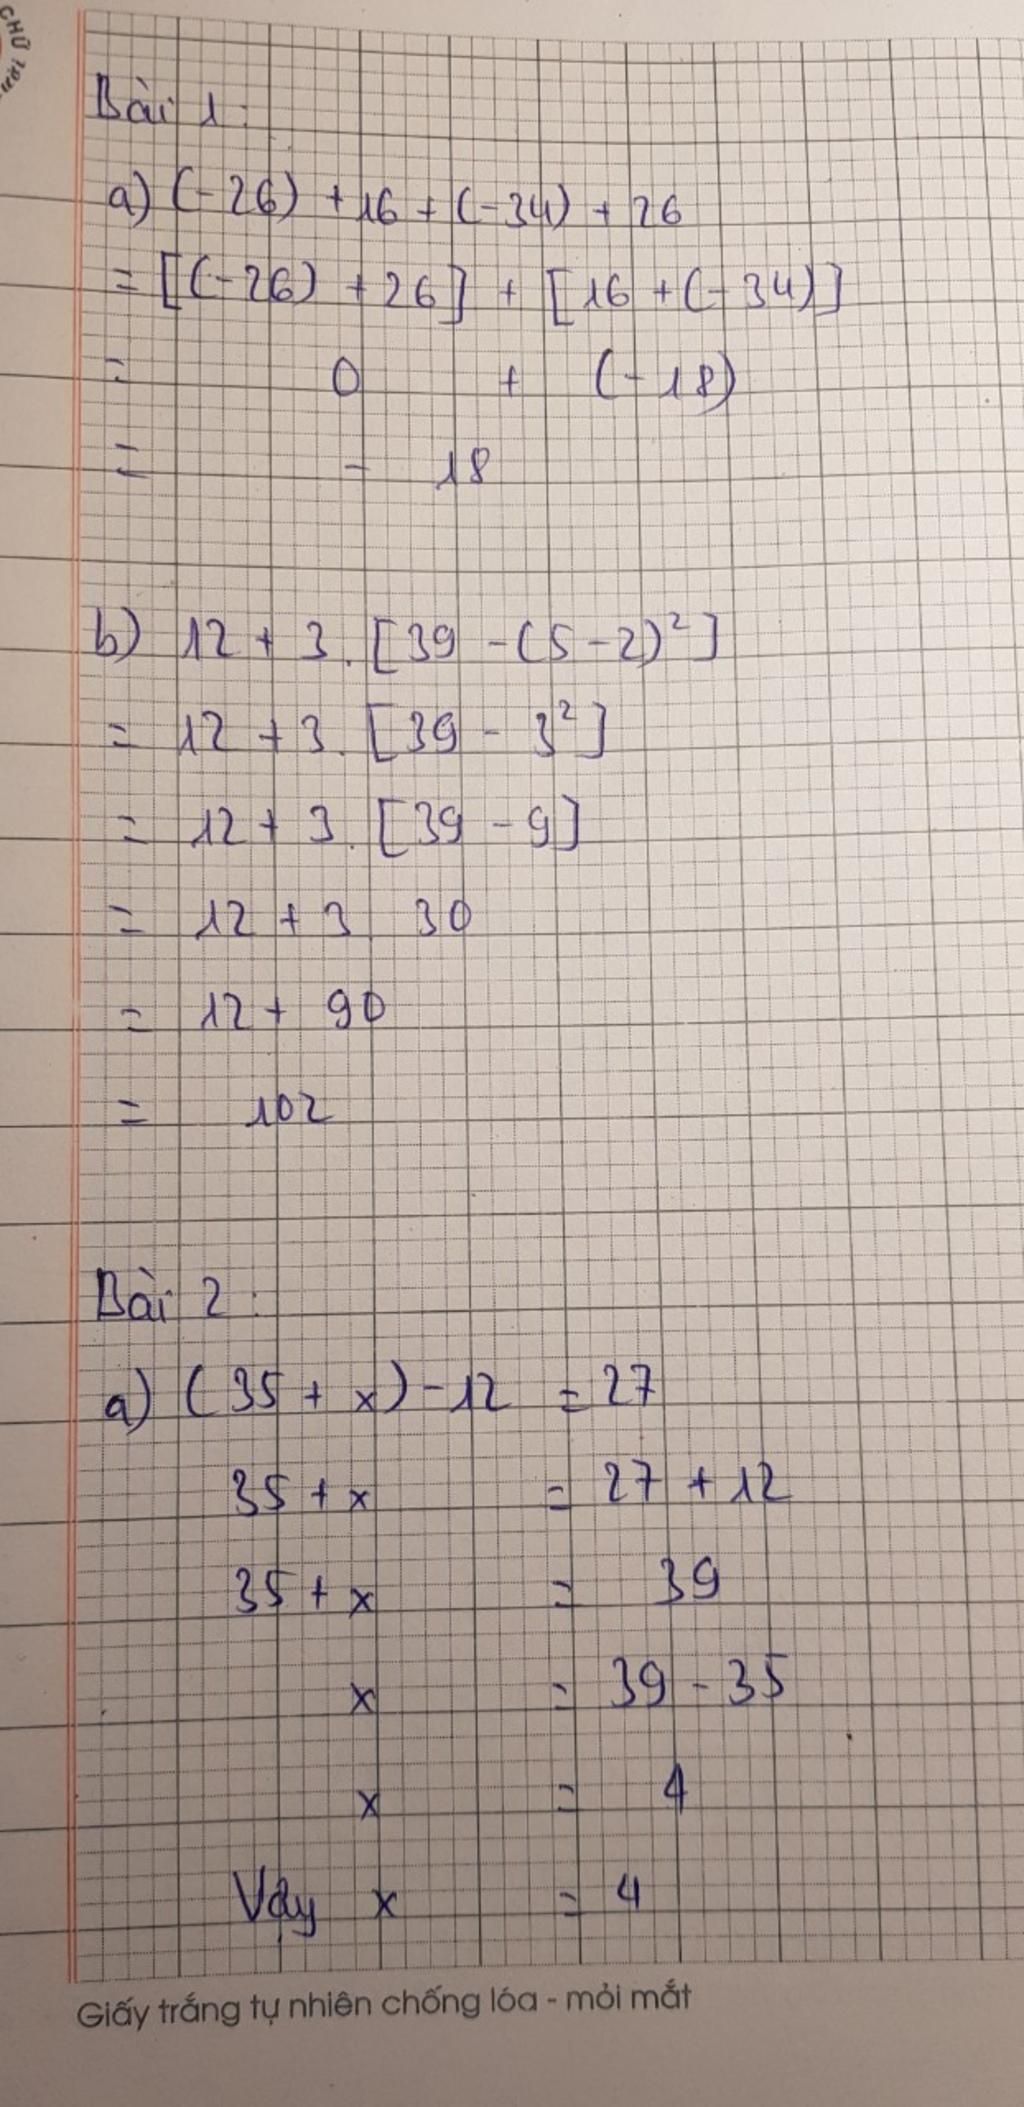 CHỮ
Bài 1:
a) (-26) + 16 + (-34) + 26
= [(-26) + 26] + [16 + (-34)]
= 0 + (-18)
= - 18
b) 12 + 3. [39 - (5 - 2)²]
= 12 + 3. [39 - 3²]
= 12 + 3. [39 - 9]
= 12 + 3 30
= 12 + 90
= 102
Bài 2:
a) (35 + x) - 12 = 27
35 + x = 27 + 12
35 + x = 39
x = 39 - 35
x = 4
Vậy x = 4
Giấy trắng tự nhiên chống lóa - mỏi mắt